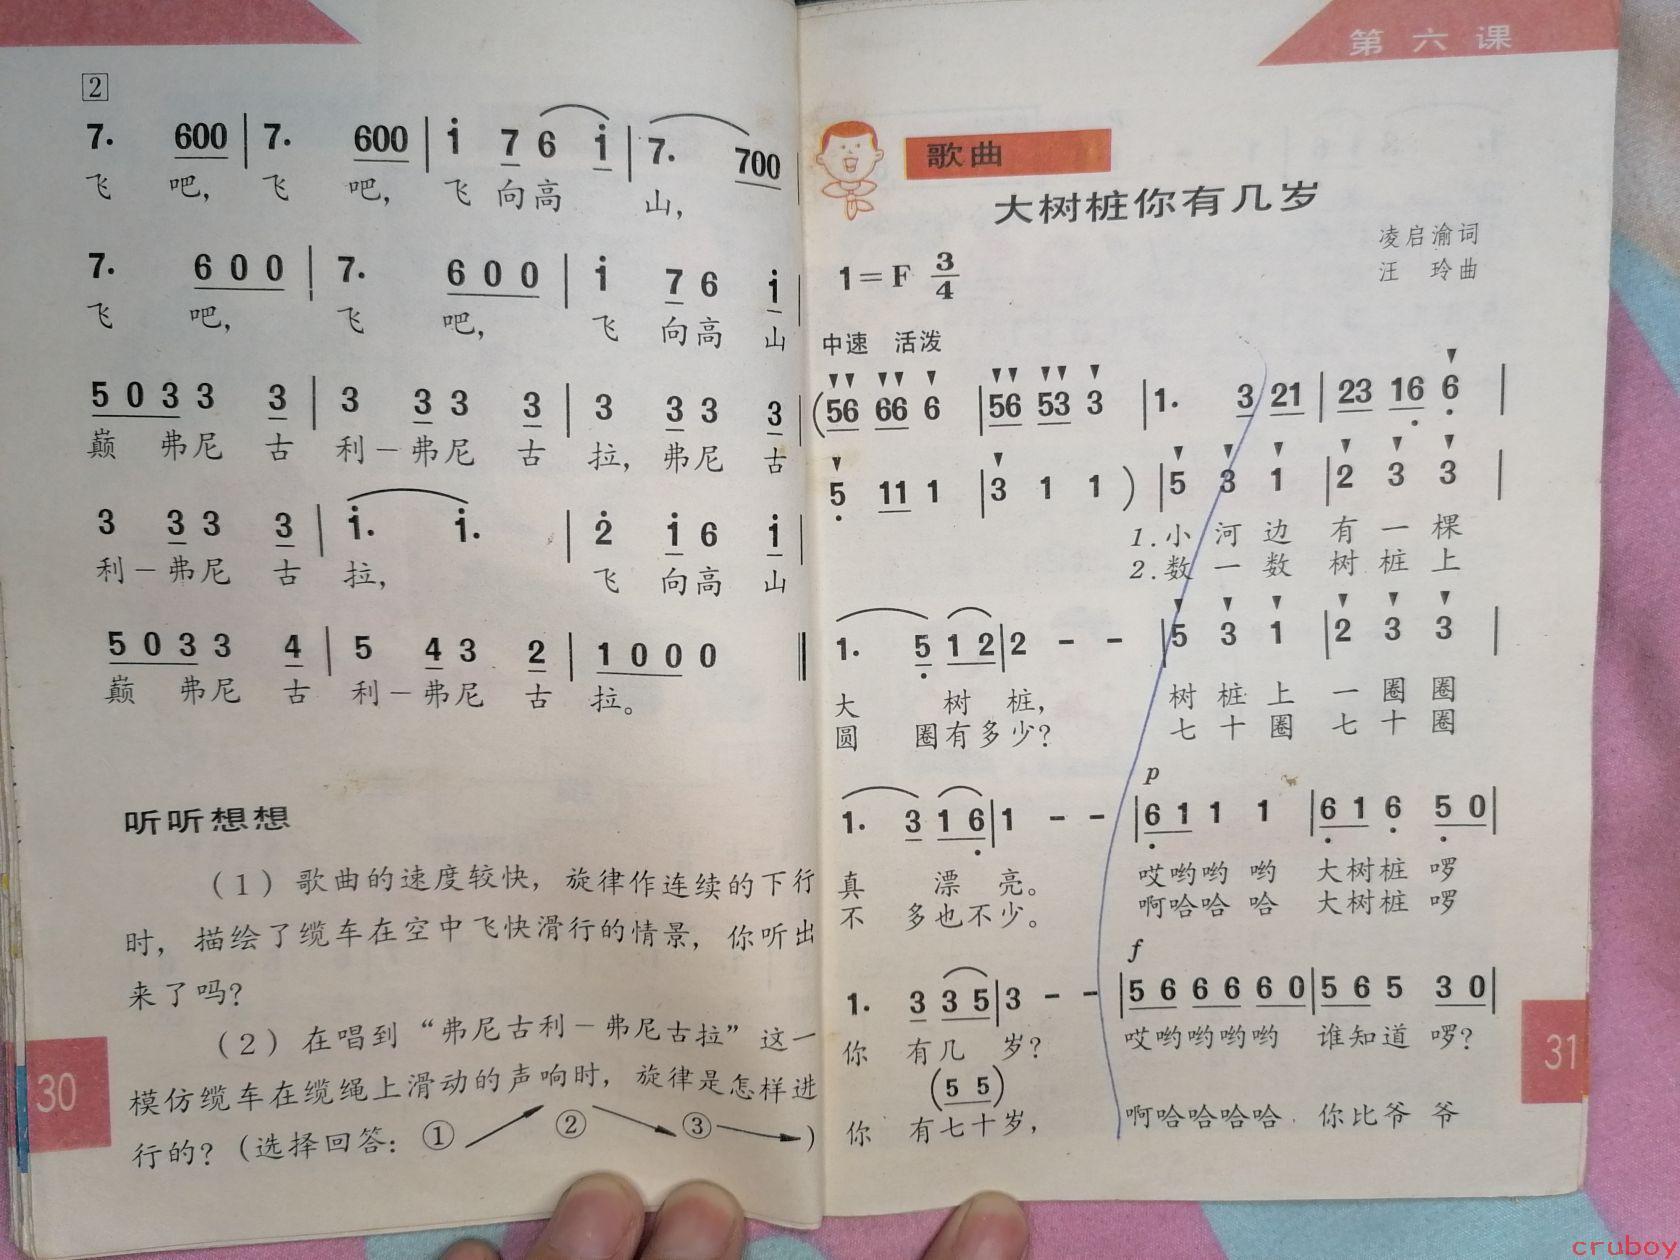 2
7. 600 | 7. 600 | i 7 6 i | 7. 700
飞 吧, 飞 吧, 飞 向高 山,
7. 6 0 0 | 7. 6 0 0 | i 7 6 i |
飞 吧, 飞 吧, 飞 向高 山
5 0 3 3 3 | 3 3 3 3 | 3 3 3 3 |
巅 弗尼 古 利－弗尼 古 拉, 弗尼 古
3 3 3 3 | i. i. | 2 i 6 i |
利－弗尼 古 拉, 飞 向高 山
5 0 3 3 4 | 5 4 3 2 | 1 0 0 0 ‖
巅 弗尼 古 利－弗尼 古 拉。
听听想想
(1) 歌曲的速度较快, 旋律作连续的下行
时, 描绘了缆车在空中飞快滑行的情景, 你听出
来了吗?
(2) 在唱到 “弗尼古利－弗尼古拉” 这一
模仿缆车在缆绳上滑动的声响时, 旋律是怎样进
行的? (选择回答: ① ② ③ )
30
第六课
歌曲
大树桩你有几岁
凌启渝词
汪 玲曲
1=F 3/4
中速 活泼
(56 66 6 | 56 53 3 | 1. 3 21 | 23 16 6 |
5 11 1 | 3 1 1 ) | 5 3 1 | 2 3 3 |
1.小 河 边 有 一 棵
2.数 一 数 树 桩 上
1. 5 1 2 | 2 - - | 5 3 1 | 2 3 3 |
大 树 桩, 树 桩 上 一 圈 圈
圆 圈有多少? 七 十 圈 七 十 圈
p
1. 3 1 6 | 1 - - | 6 1 1 1 | 6 1 6 5 0 |
真 漂 亮。 哎哟哟 哟 大树桩 啰
不 多也不少。 啊哈哈 哈 大树桩 啰
f
1. 3 3 5 | 3 - - | 5 6 6 6 6 0 | 5 6 5 3 0 |
你 有几 岁? 哎哟哟哟哟 谁知道 啰?
(5 5)
你 有七十岁, 啊哈哈哈哈 你比爷 爷
31
cruboy